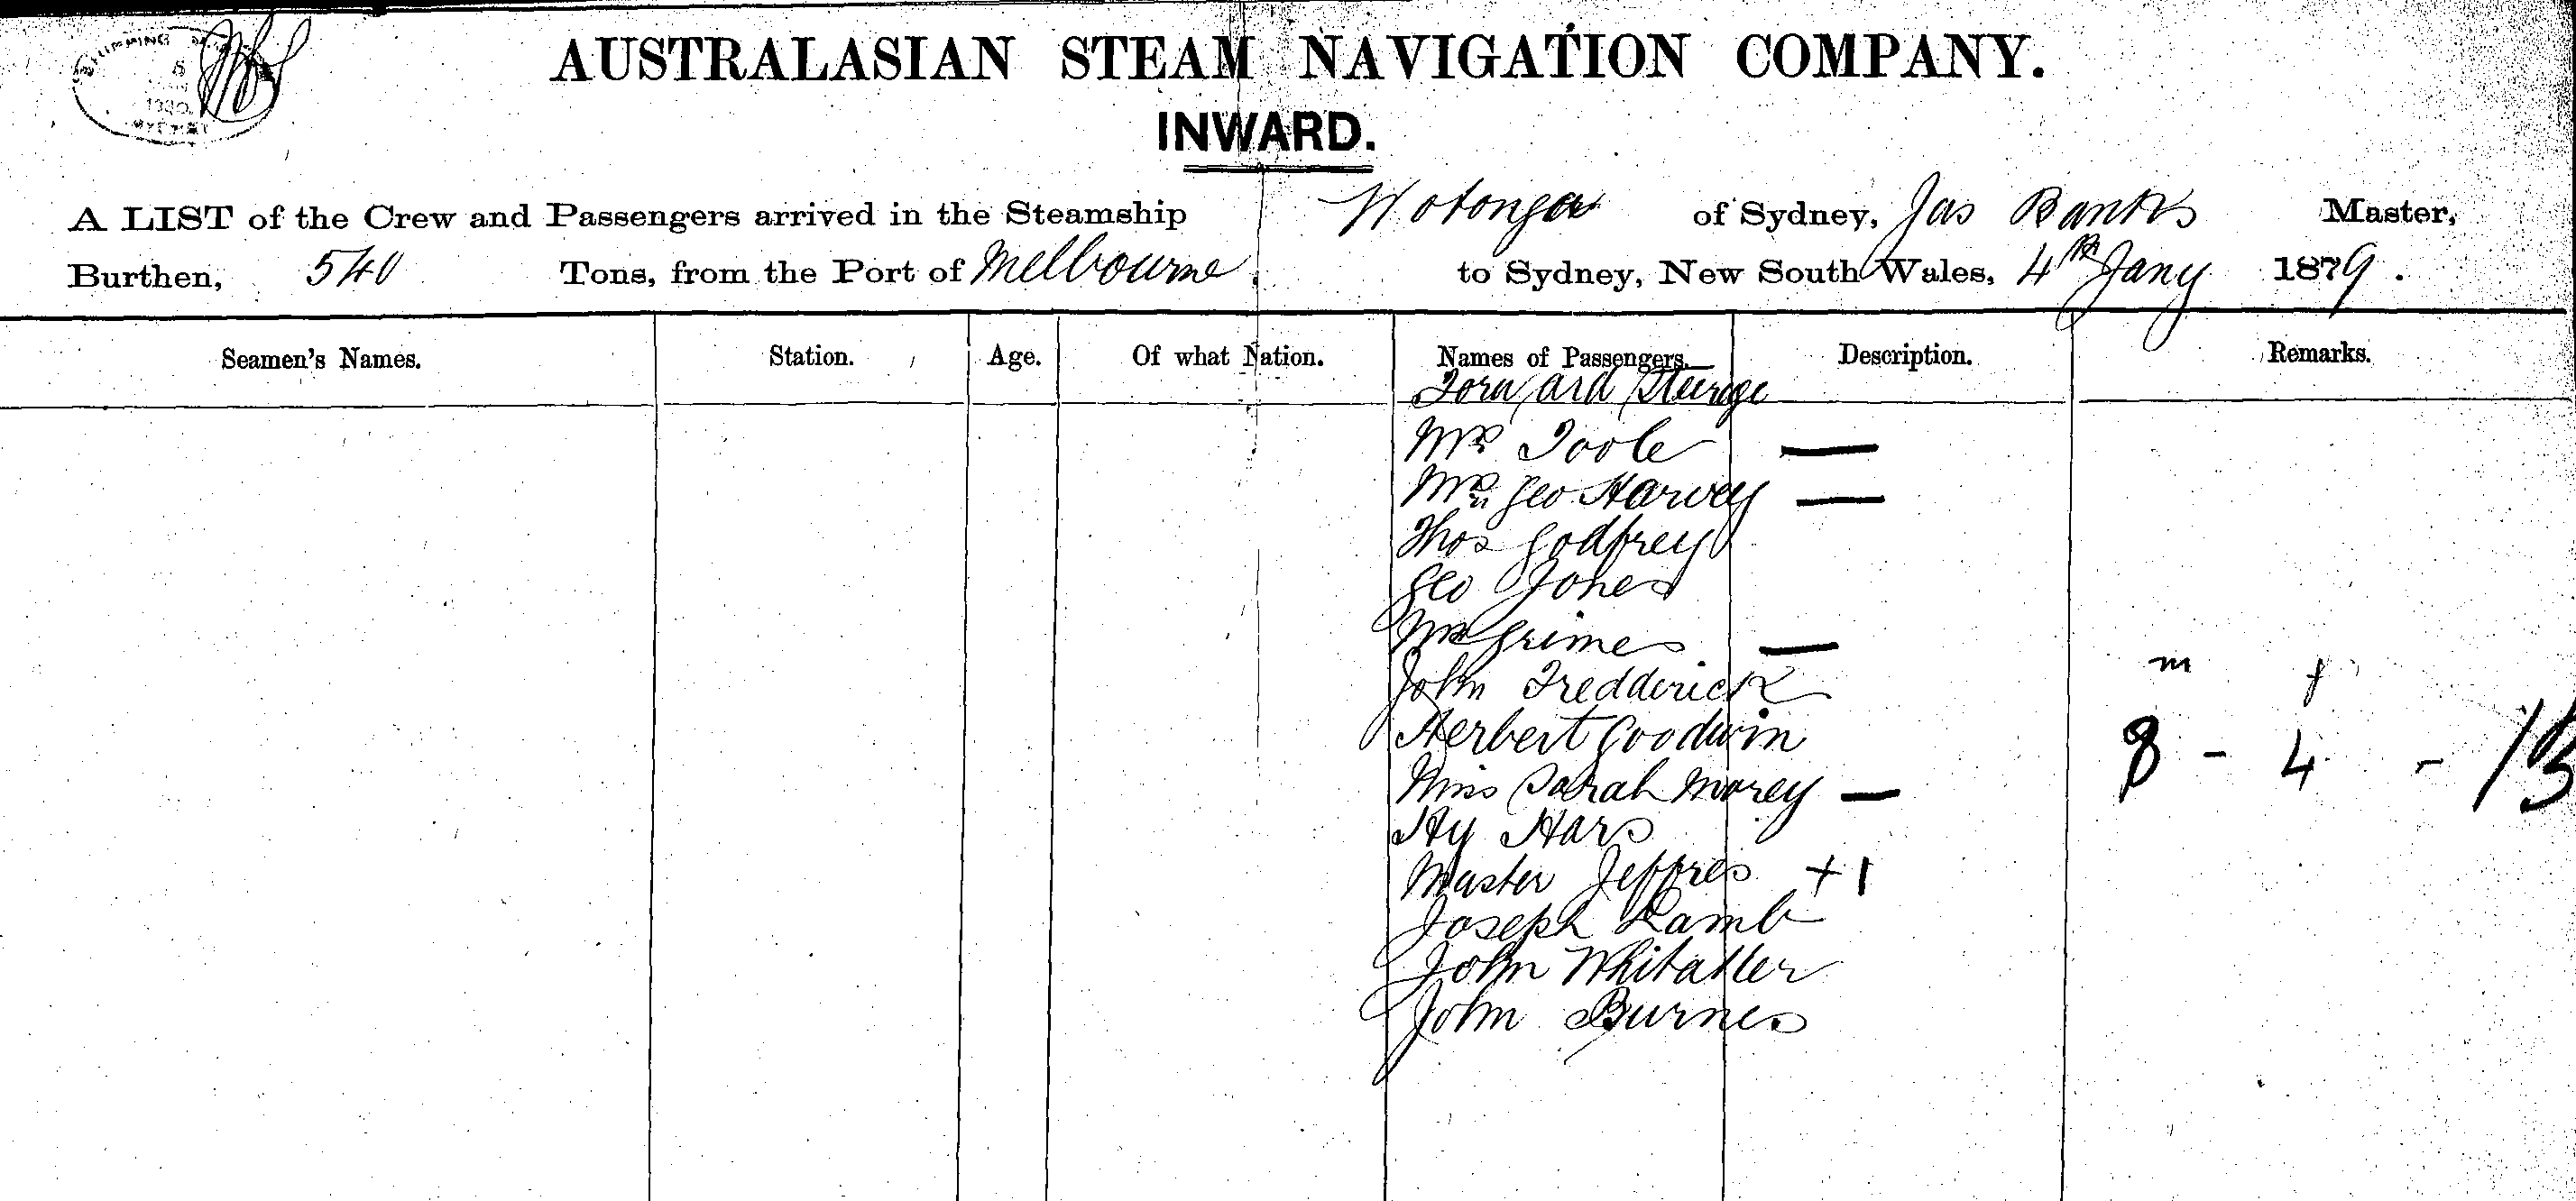 SHIPPING
5
1880
SYDNEY
AUSTRALASIAN STEAM NAVIGATION COMPANY.
INWARD.
A LIST of the Crew and Passengers arrived in the Steamship Wotonga of Sydney, Jas Banks Master,
Burthen, 540 Tons, from the Port of Melbourne, to Sydney, New South Wales, 4th Jany 1879.
Seamen's Names. Station. Age. Of what Nation. Names of Passengers. Description. Remarks.
Forward Steerage
Mrs Toole —
Mrs Geo Harvey —
Thos Godfrey
Geo Jones
Mrs Grimes —
John Fredderick
Herbert Goodwin
Miss Sarah Morey —
Hy Hars
Master Jeffres + 1
Joseph Lamb
John Whitaker
John Burnes
m f
8 - 4 - 13